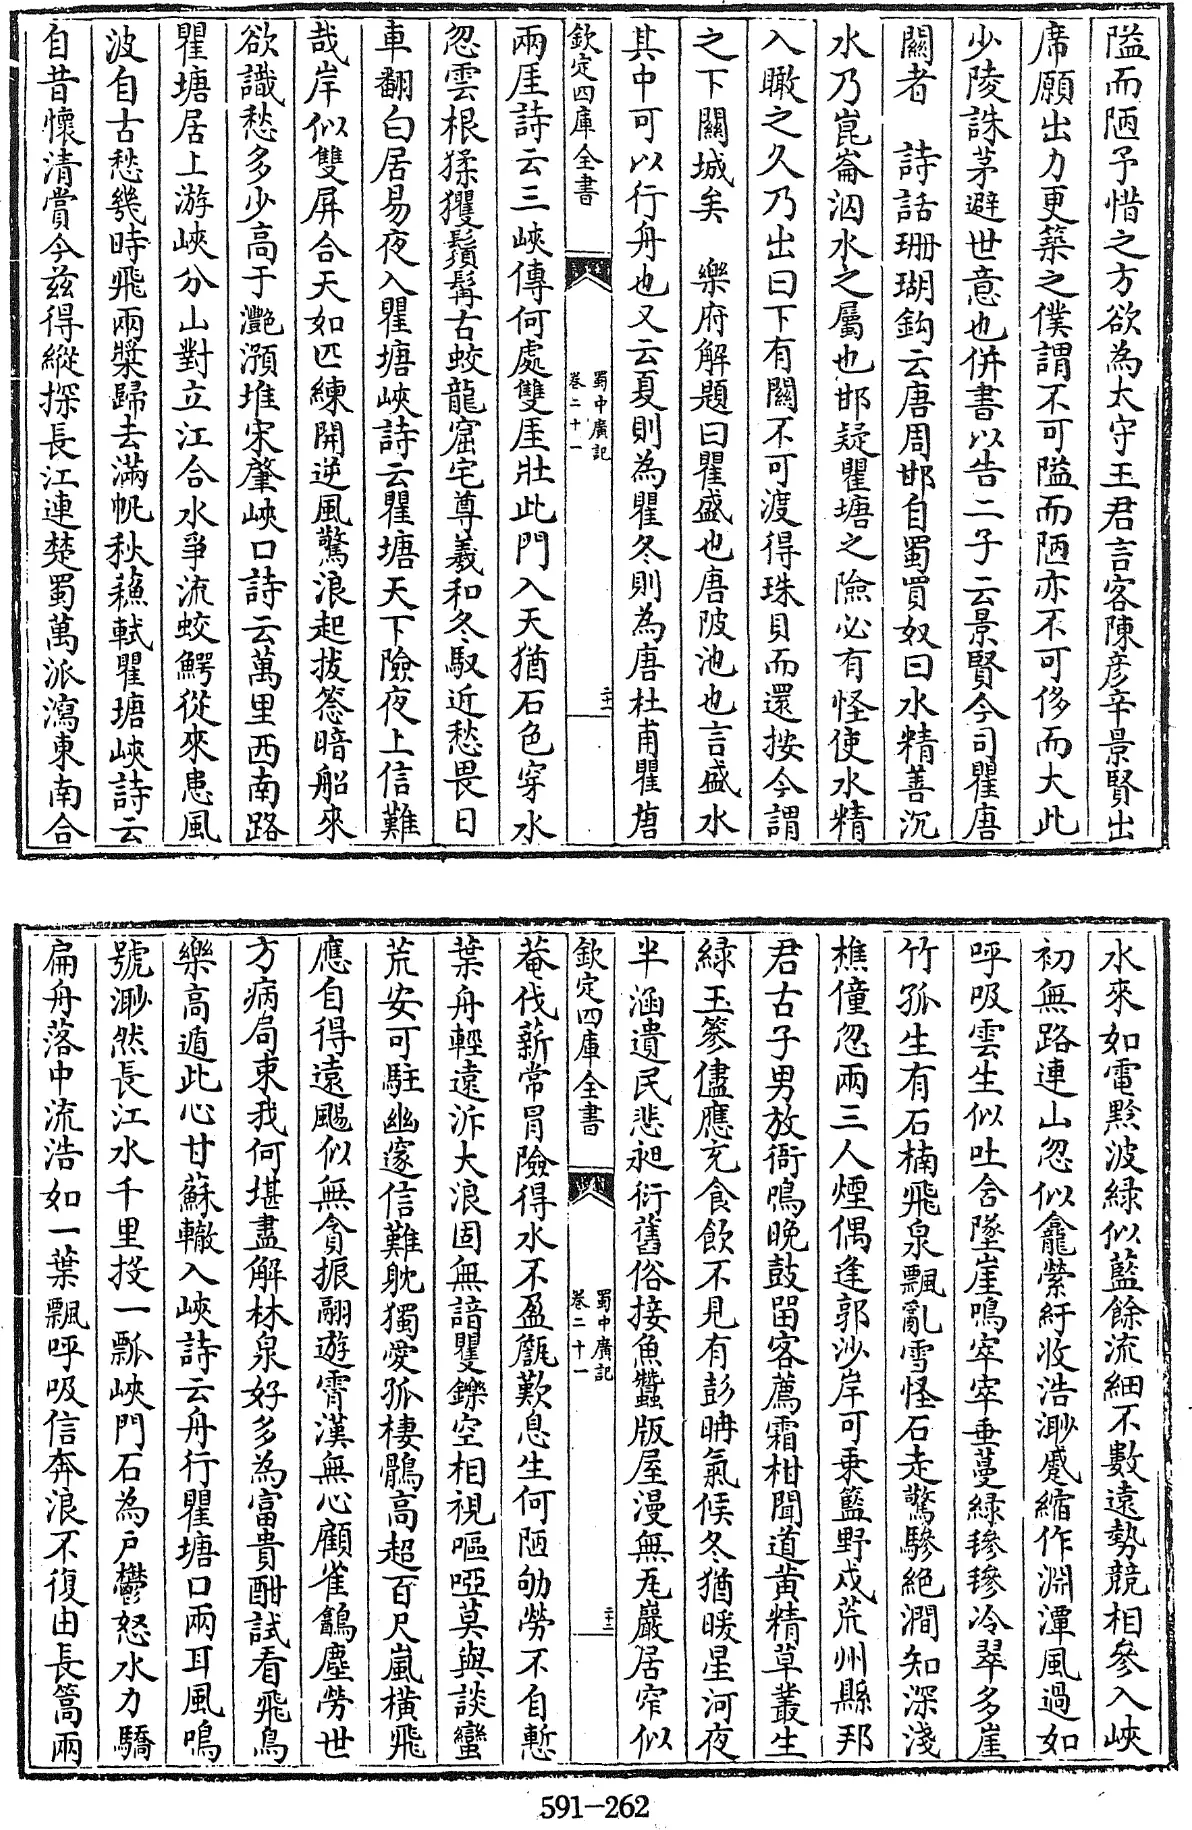 隘而陋予惜之方欲為太守王君言客陳彦辛景賢出
席願出力更築之僕謂不可隘而陋亦不可侈而大此
少陵誅茅避世意也併書以告二子云景賢今司瞿唐
關者　詩話珊瑚鈎云唐周邯自蜀買奴曰水精善沉
水乃崑崙泅水之屬也邯疑瞿塘之險必有怪使水精
入瞰之久乃出曰下有關不可渡得珠貝而還按今謂
之下關城矣　樂府解題曰瞿盛也唐陂池也言盛水
其中可以行舟也又云夏則為瞿冬則為唐杜甫瞿唐
欽定四庫全書
蜀中廣記
卷二十一
二十一
兩厓詩云三峽傳何處雙厓壯此門入天猶石色穿水
忽雲根猱玃鬚髯古蛟龍窟宅尊羲和冬馭近愁畏日
車翻白居易夜入瞿塘峽詩云瞿塘天下險夜上信難
哉岸似雙屏合天如匹練開逆風驚浪起拔䇲暗船來
欲識愁多少高于灔澦堆宋肇峽口詩云萬里西南路
瞿塘居上游峽分山對立江合水爭流蛟鰐從來患風
波自古愁幾時飛兩槳歸去滿帆秋蘓軾瞿塘峽詩云
自昔懷清賞今兹得縱探長江連楚蜀萬派瀉東南合
水來如電黔波緑似藍餘流細不數遠勢競相參入峽
初無路連山忽似龕縈紆收浩渺蹙縮作淵潭風過如
呼吸雲生似吐含墜崖鳴窣窣垂蔓緑毿毿冷翠多崖
竹孤生有石楠飛泉飄亂雪怪石走驚驂絶澗知深淺
樵僮忽兩三人煙偶逢郭沙岸可乗籃野戍荒州縣邦
君古子男放衙鳴晚鼓留客薦霜柑聞道黄精草叢生
緑玉篸儘應充食飲不見有彭聃氣候冬猶暖星河夜
半涵遺民悲昶衍舊俗接魚蠶版屋漫無瓦巖居窄似
欽定四庫全書
蜀中廣記
卷二十一
二十二
菴伐薪常冒險得水不盈甔歎息生何陋劬勞不自慙
葉舟輕遠泝大浪固無諳矍鑠空相視嘔啞莫與談蠻
荒安可駐幽邃信難躭獨愛孤棲鶻高超百尺嵐橫飛
應自得遠颺似無貪振翮遊霄漢無心顧雀鷂塵勞世
方病局束我何堪盡解林泉好多為富貴酣試看飛鳥
樂高遁此心甘蘇轍入峽詩云舟行瞿塘口兩耳風鳴
號渺然長江水千里投一瓢峽門石為户鬱怒水力驕
扁舟落中流浩如一葉飄呼吸信奔浪不復由長篙兩
591-262